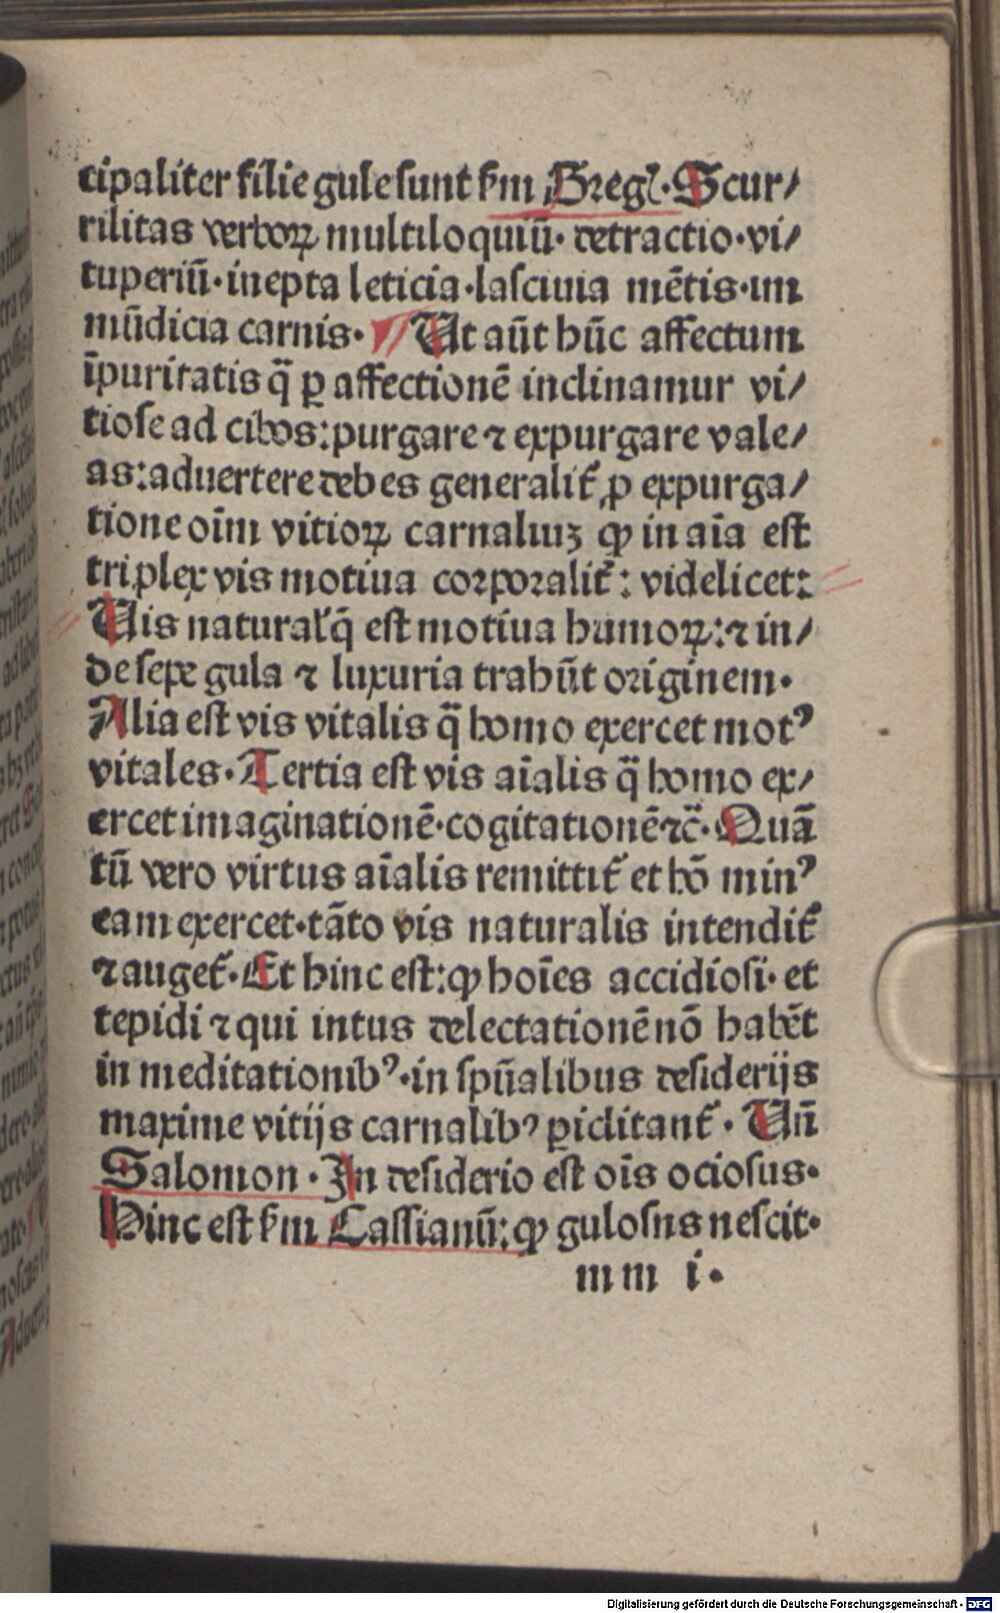 cipaliter filie gule sunt ẜm Gregꝉ. Scur⸗
rilitas verboꝝ multiloquiū· detractio·vi⸗
tuperiū·inepta leticia·lasciuia mētis·im
mūdicia carnis· Ut aūt hūc affectum
īpuritatis q̄ ꝑ affectionē inclinamur vi⸗
tiose ad cibos: purgare ⁊ expurgare vale⸗
as: aduertere debes generalit̄ ꝓ expurga⸗
tione oīm vitioꝝ carnaliuꝫ ꝙ in aīa est
triplex vis motiua corporalit̄: videlicet:
Uis natural̄ q̄ est motiua humoꝝ: ⁊ in⸗
de sepe gula ⁊ luxuria trahūt originem·
Alia est vis vitalis q̄ homo exercet motꝰ
vitales· Tertia est vis aīalis q̄ homo ex⸗
ercet imaginationē·cogitationē ⁊c̄· Quā
tū vero virtus aīalis remittit̄ et hō minꝰ
eam exercet·tāto vis naturalis intendit̄
⁊ auget̄· Et hinc est: ꝙ hoīes accidiosi· et
tepidi ⁊ qui intus delectationē nō habēt
in meditationibꝰ·in spūalibus desiderijs
maxime vitijs carnalibꝰ ꝑiclitant̄· Un̄
Salomon· In desiderio est oīs ociosus·
Hinc est ẜm Cassianū: ꝙ gulosus nescit·
mm i·
Digitalisierung gefördert durch die Deutsche Forschungsgemeinschaft - DFG